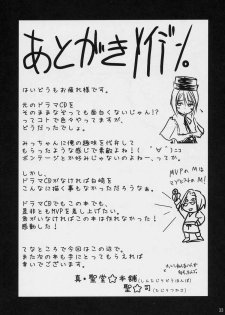 あとがきメイデン。
はいどうもお疲れ様です。
元のドラマCDを
そのままなぞっても面白くないじゃん!?
ってコトで色々やってますが、
どうだったでしょう。
みっちゃんに俺の趣味を代弁して
もらったような感じで素敵よね!(゚∀゚)
ボンテージとか好みじゃないのよねー、ってか。
しかし、
ドラマCDがなければ白崎を
こんなに描く事もなかっただろうなぁ。
ドラマCDでもこの本でも、
是非ともMVPを差し上げたい。
あいがなければこの本は作れなかった!
感動!
てなところで今回はこの辺で。
また次の本も手にとってもらえれば
幸いでございます。
真・聖堂☆本舗
(しんせいどうほんぽ)
聖☆司
(ひじりつかさ)
MVPのMは
マゾヒストのM!
33